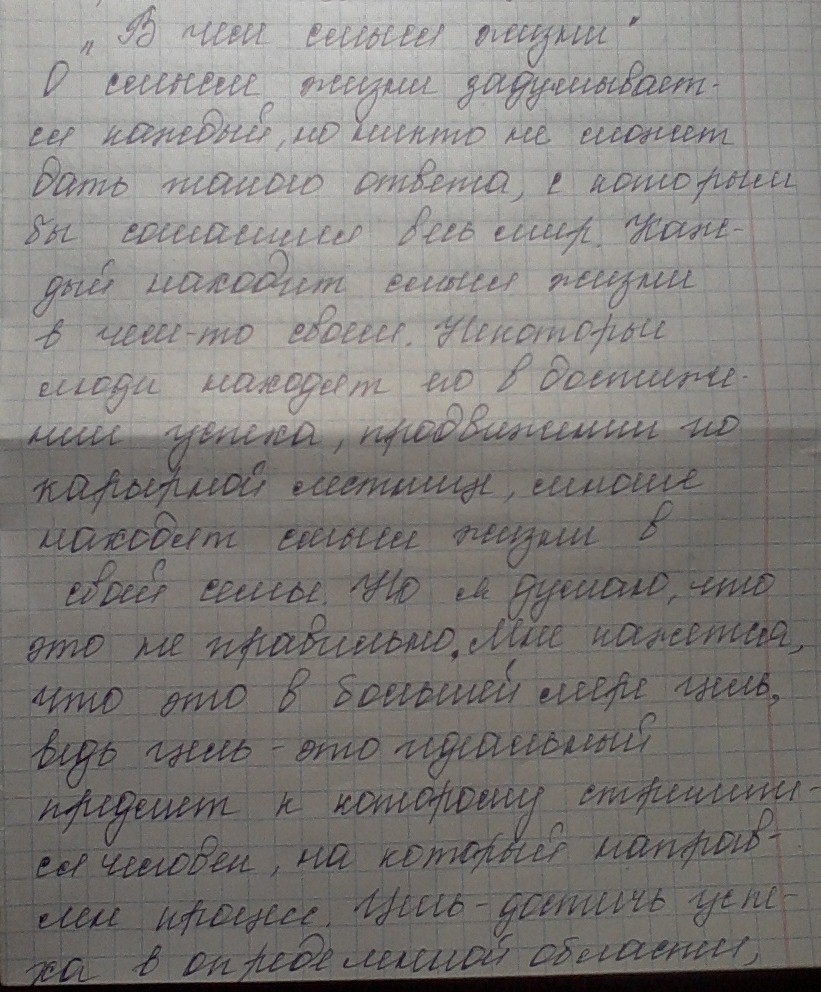 „В чем смысл жизни"
О смысле жизни задумывает-
ся каждый, но никто не может
дать такого ответа, с которым
бы согласился весь мир. Каж-
дый находит смысл жизни
в чем-то своем. Некоторые
люди находят его в достиже-
нии успеха, продвижении по
карьерной лестнице, многие
находят смысл жизни в
своей семье. Но я думаю, что
это не правильно. Мне кажется,
что это в большей мере цель,
ведь цель - это идеальный
предмет к которому стремит-
ся человек, на который направ-
лен процесс. Цель - достичь успе-
ха в определенной области,